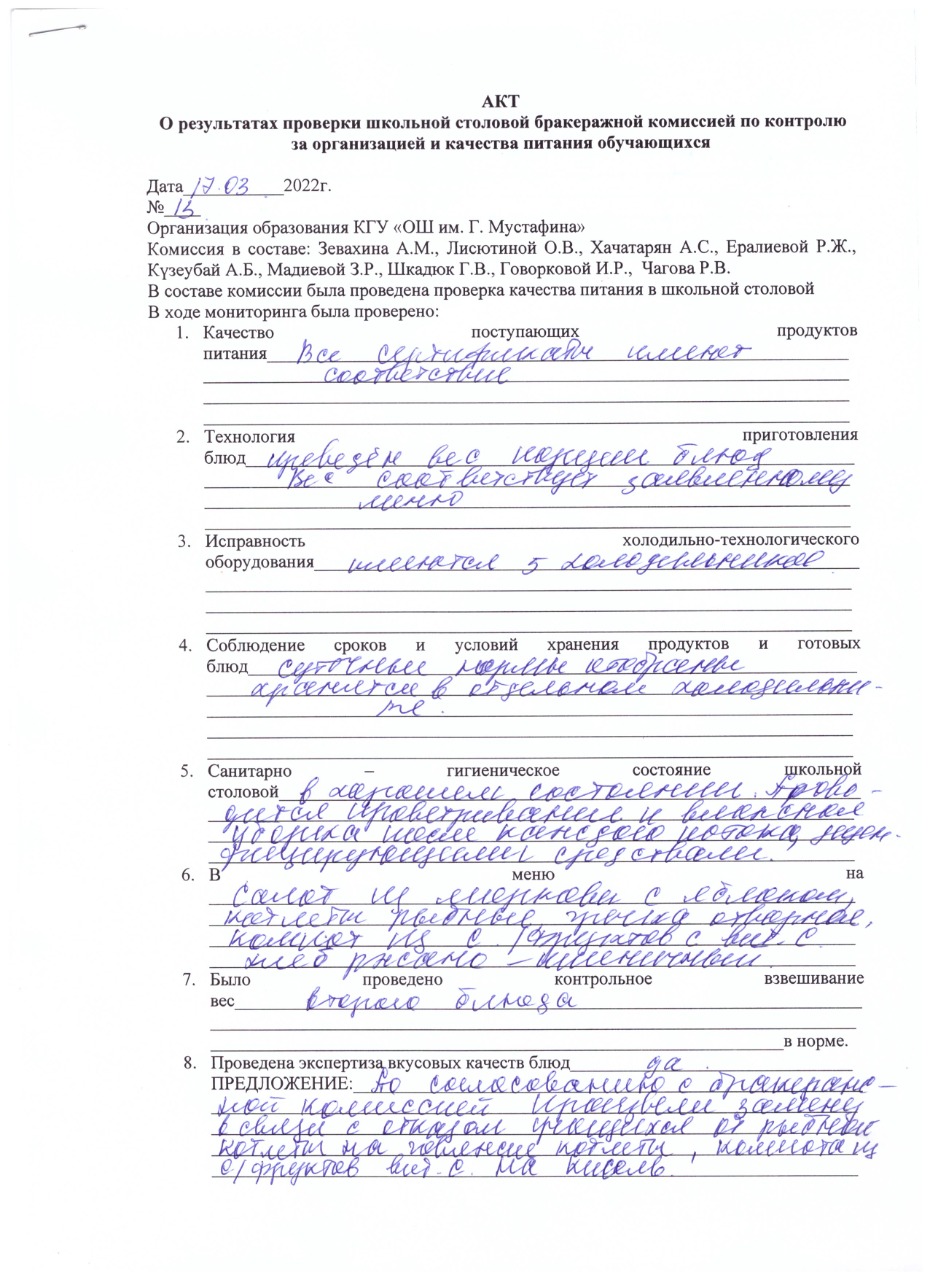 АКТ
О результатах проверки школьной столовой бракеражной комиссией по контролю
за организацией и качества питания обучающихся
Дата 17.03 2022г.
№ 13
Организация образования КГУ «ОШ им. Г. Мустафина»
Комиссия в составе: Зевахина А.М., Лисютиной О.В., Хачатарян А.С., Ералиевой Р.Ж.,
Күзеубай А.Б., Мадиевой З.Р., Шкадюк Г.В., Говорковой И.Р., Чагова Р.В.
В составе комиссии была проведена проверка качества питания в школьной столовой
В ходе мониторинга была проверено:
1. Качество поступающих продуктов
питания Все сертификаты имеют
соответствие
2. Технология приготовления
блюд проведён вес порции блюд
Вес соответствует заявленному
меню
3. Исправность холодильно-технологического
оборудования имеются 5 холодильников
4. Соблюдение сроков и условий хранения продуктов и готовых
блюд суточные нормы отобраны
хранятся в отдельном холодильни-
ке.
5. Санитарно – гигиеническое состояние школьной
столовой в хорошем состоянии. Прово-
дится проветривании и влажная
уборка после каждого потока, дезин-
фицирующими средствами.
6. В меню на
Салат из моркови с яблоком,
котлеты рыбные гречка отварная,
компот из с/фруктов с вит. С
хлеб ржано – пшеничный.
7. Было проведено контрольное взвешивание
вес второго блюда
в норме.
8. Проведена экспертиза вкусовых качеств блюд да.
ПРЕДЛОЖЕНИЕ: По согласованию с бракераж-
ной комиссией произвели замену
в связи с отказом учащихся от рыбной
котлеты на говяжие котлеты, компота из
с/фруктов вит. С. на кисель.